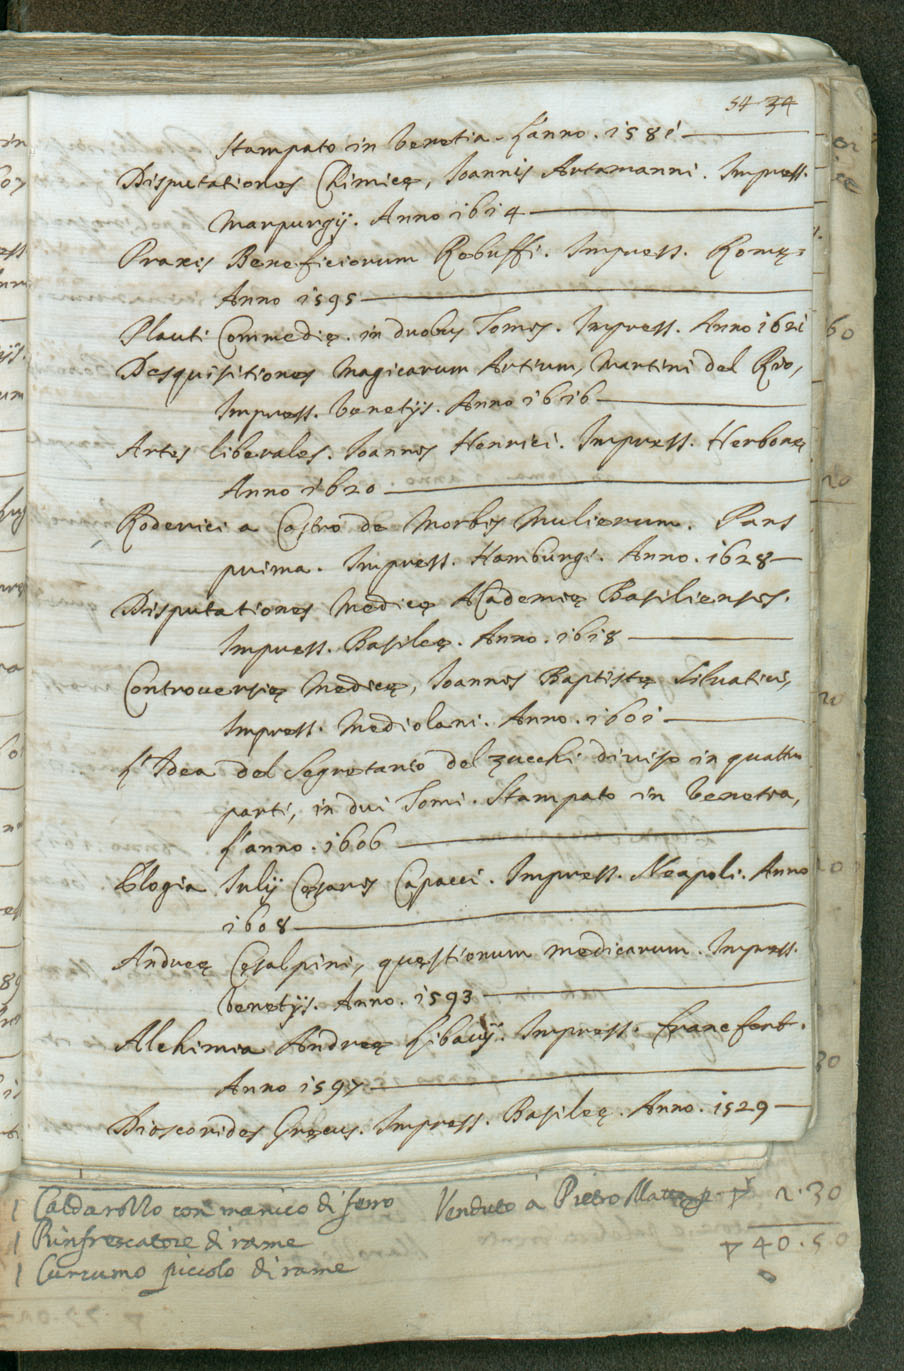 54 34
Stampato in Venetia. L'anno. 1581
Disputationes Chimicę, Joannis Artamanni. Impress.
Marpurgij. Anno 1614
Praxis Beneficiorum Rebuffi. Impress. Romę.
Anno 1595
Plauti Commedię. in duobus Tomis. Impress. Anno 1621
Desquisitiones Magicarum Artium, Martini del Rio,
Impress. Venetijs. Anno 1616
Artes liberales. Joannis Henrici. Impress. Herbonę
Anno 1620
Roderici a Castro de Morbis Mulierum. Pars
prima. Impress. Hamburgi. Anno. 1628
Disputationes Medicę Academię Basiliensis.
Impress. Basileę. Anno. 1618
Controversię Medicę, Joannis Baptistę Silvatici,
Impress. Mediolani. Anno. 1601
L'Idea del Segretario del Zucchi diviso in quattro
parti, in dui Tomi. Stampato in Venetia,
L'anno. 1606
Elogia Iulij Cęsaris Capacci. Impress. Neapoli. Anno
1608
Andreę Cęsalpini, quęstionum medicarum. Impress.
Venetijs. Anno. 1593
Alchimia Andreę Libavij. Impress. Francfort.
Anno 1597
Dioscorides Gręcus. Impress. Basileę. Anno. 1529
1 Caldarollo con manico di ferro Venduto à Pietro 2.30
1 Rinfrescatore di rame 40.50
1 Curzumo piccolo di rame